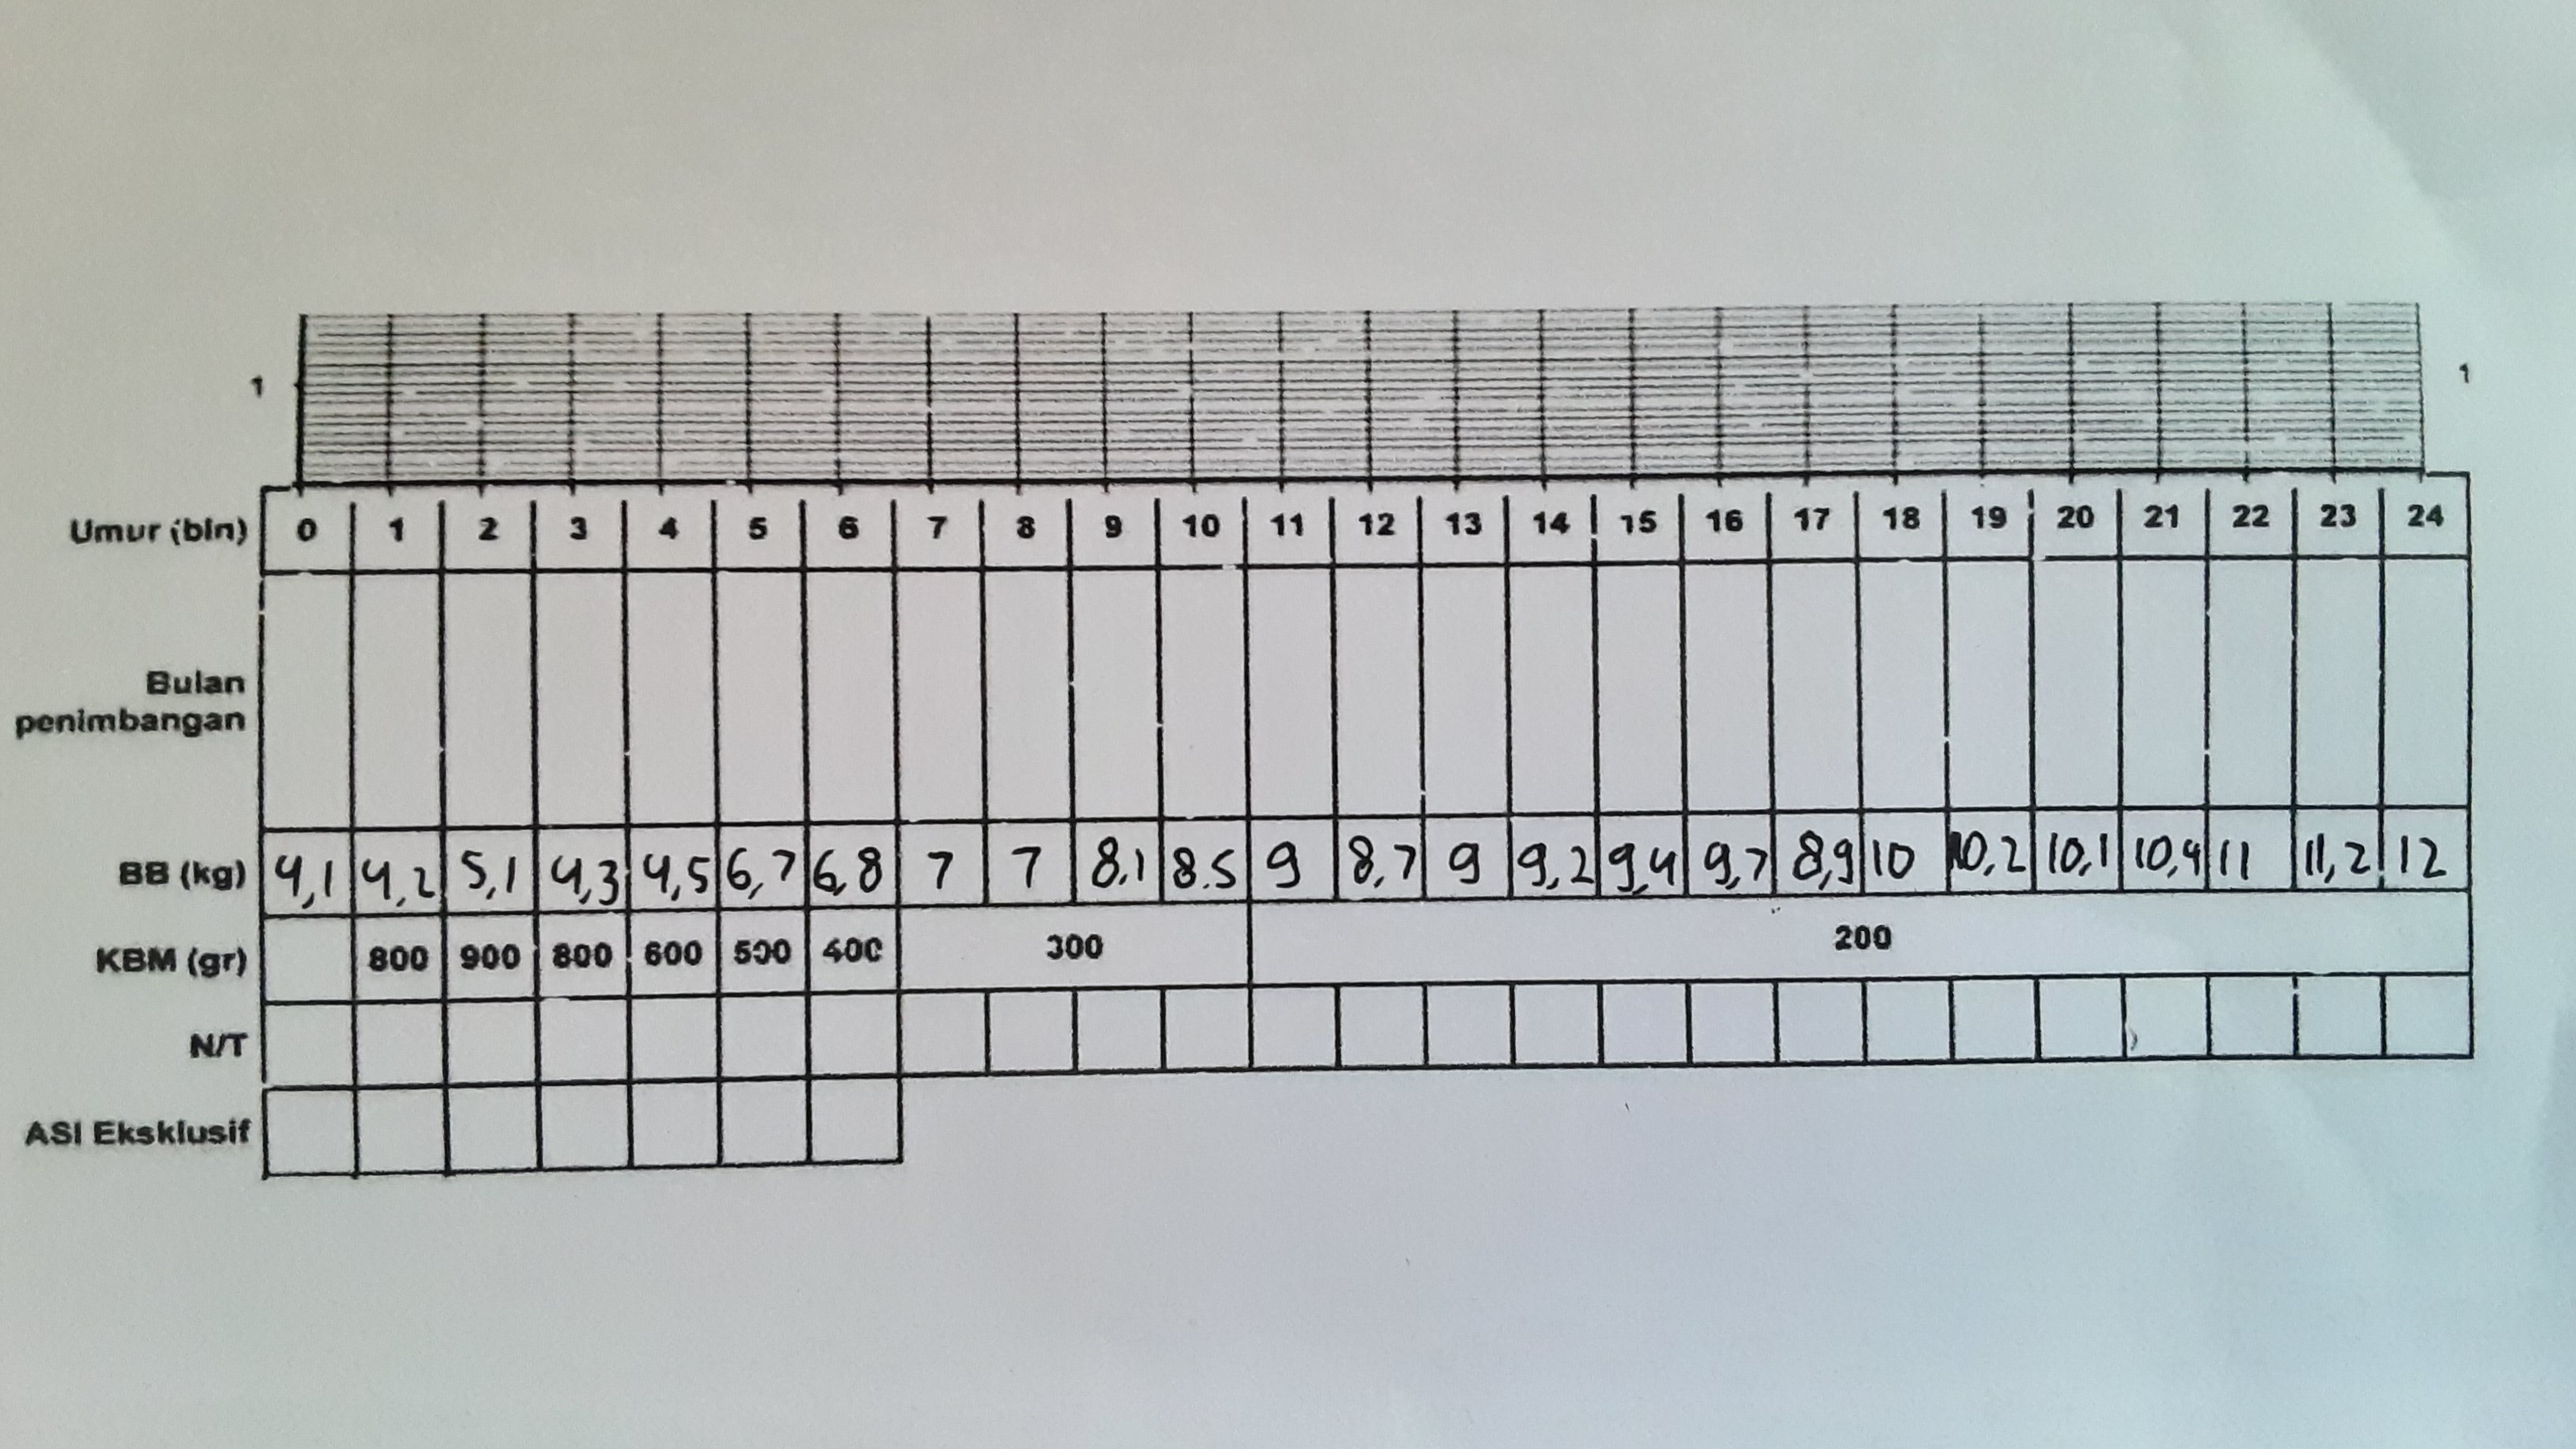 1 1
Umur (bln) 0 1 2 3 4 5 6 7 8 9 10 11 12 13 14 15 16 17 18 19 20 21 22 23 24
Bulan
penimbangan
BB (kg) 4,1 4,2 5,1 4,3 4,5 6,7 6,8 7 7 8.1 8.5 9 8,7 9 9,2 9,4 9,7 8,9 10 10,2 10,1 10,4 11 11,2 12
KBM (gr) 800 900 800 600 500 400 300 200
N/T
ASI Eksklusif